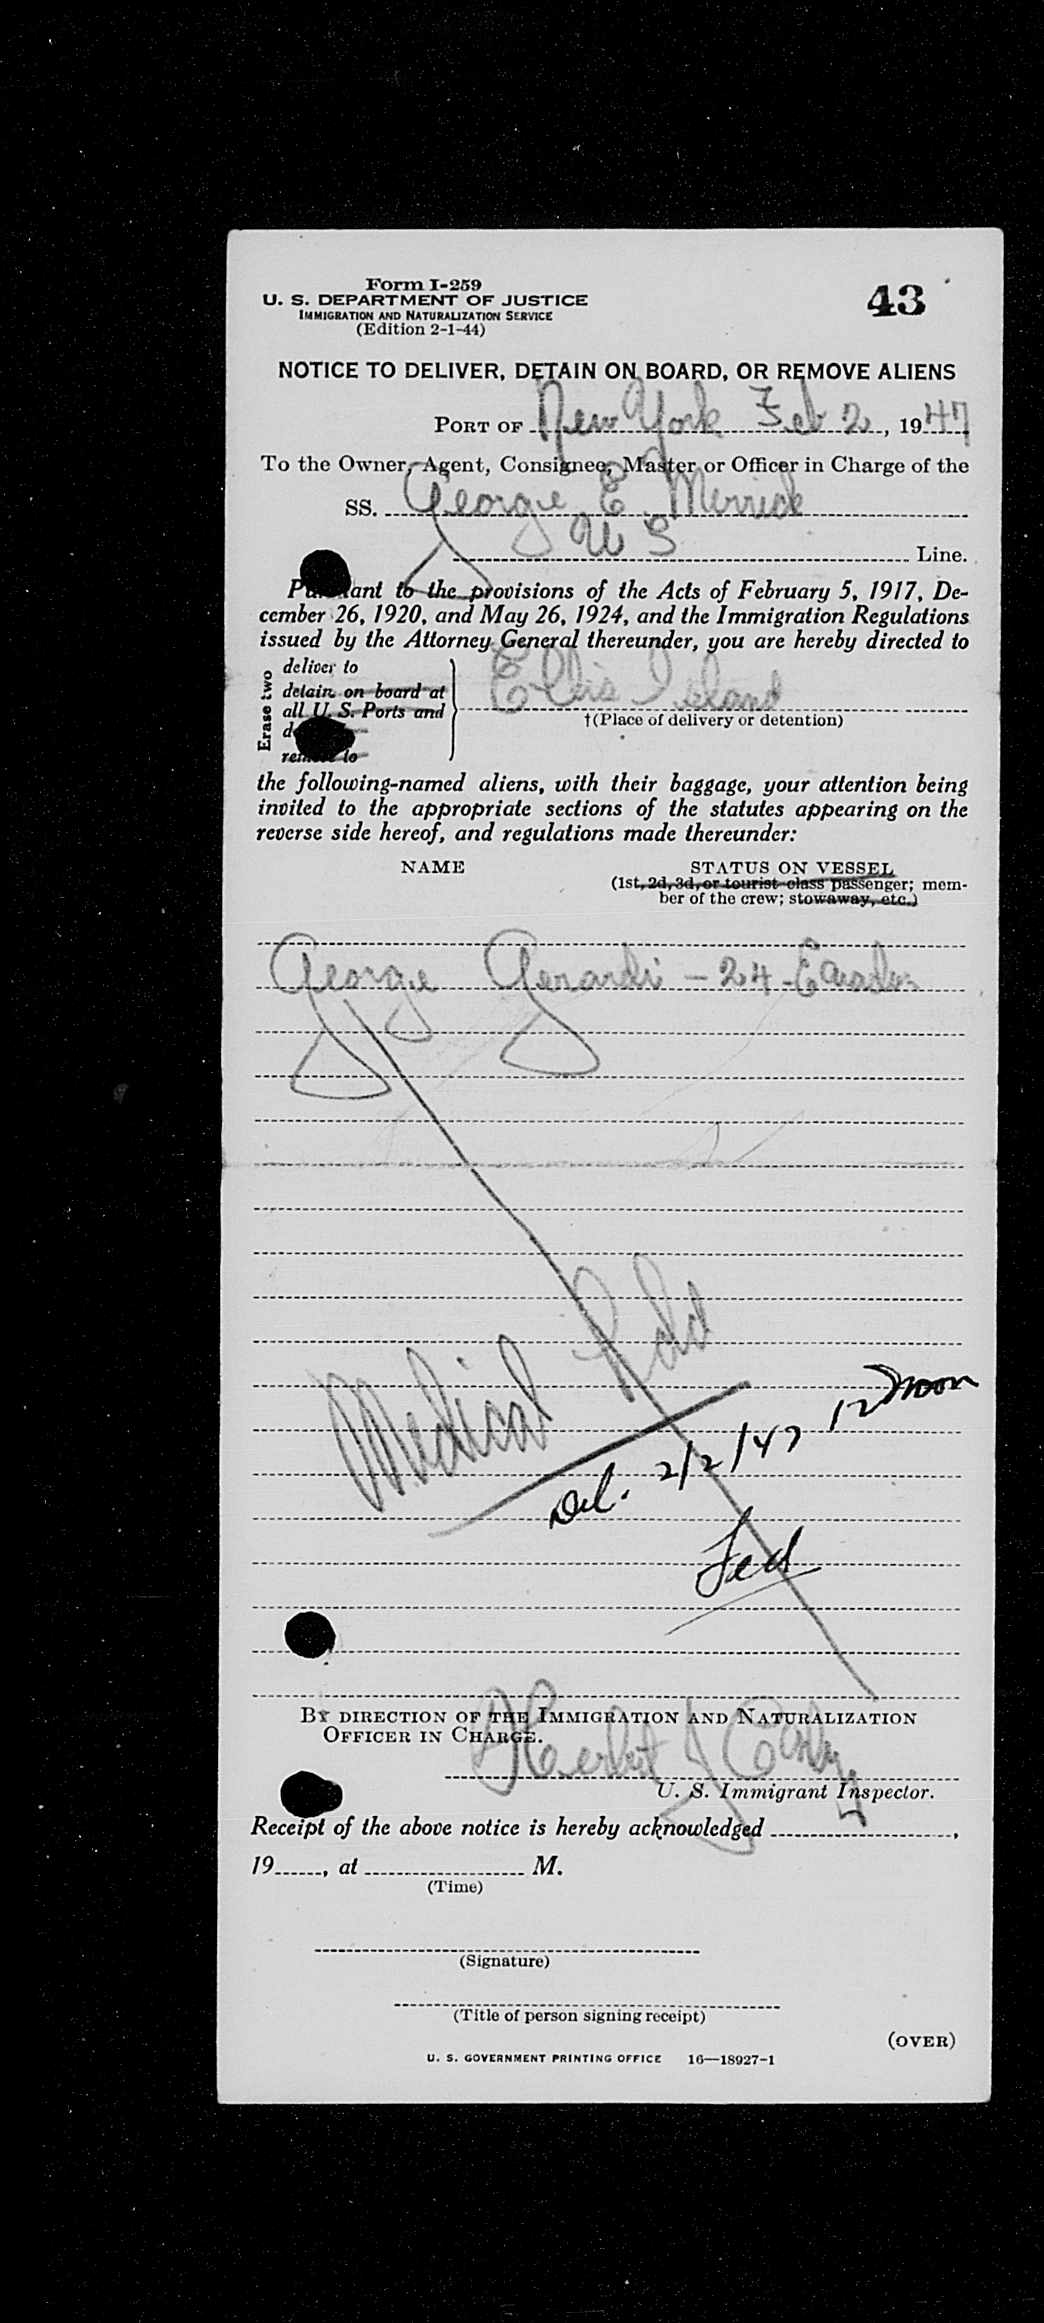 Form I-259
U. S. DEPARTMENT OF JUSTICE
IMMIGRATION AND NATURALIZATION SERVICE
(Edition 2-1-44)
43
NOTICE TO DELIVER, DETAIN ON BOARD, OR REMOVE ALIENS
PORT OF New York Feb 2, 1947
To the Owner, Agent, Consignee, Master or Officer in Charge of the
SS. George E. Merrick
U S Line.
Pursuant to the provisions of the Acts of February 5, 1917, De-
cember 26, 1920, and May 26, 1924, and the Immigration Regulations
issued by the Attorney General thereunder, you are hereby directed to
Erase two
deliver to
detain on board at
all U. S. Ports and
remove to
Ellis Island
†(Place of delivery or detention)
the following-named aliens, with their baggage, your attention being
invited to the appropriate sections of the statutes appearing on the
reverse side hereof, and regulations made thereunder:
NAME
STATUS ON VESSEL
(1st, 2d, 3d, or tourist-class passenger; mem-
ber of the crew; stowaway, etc.)
George Gerardi - 24 -
Medical Hold
Del. 2/2/47 12 noon
By DIRECTION OF THE IMMIGRATION AND NATURALIZATION
OFFICER IN CHARGE.
Herbert J
U. S. Immigrant Inspector.
Receipt of the above notice is hereby acknowledged ,
19 , at M.
(Time)
(Signature)
(Title of person signing receipt)
(OVER)
U. S. GOVERNMENT PRINTING OFFICE 16—18927-1